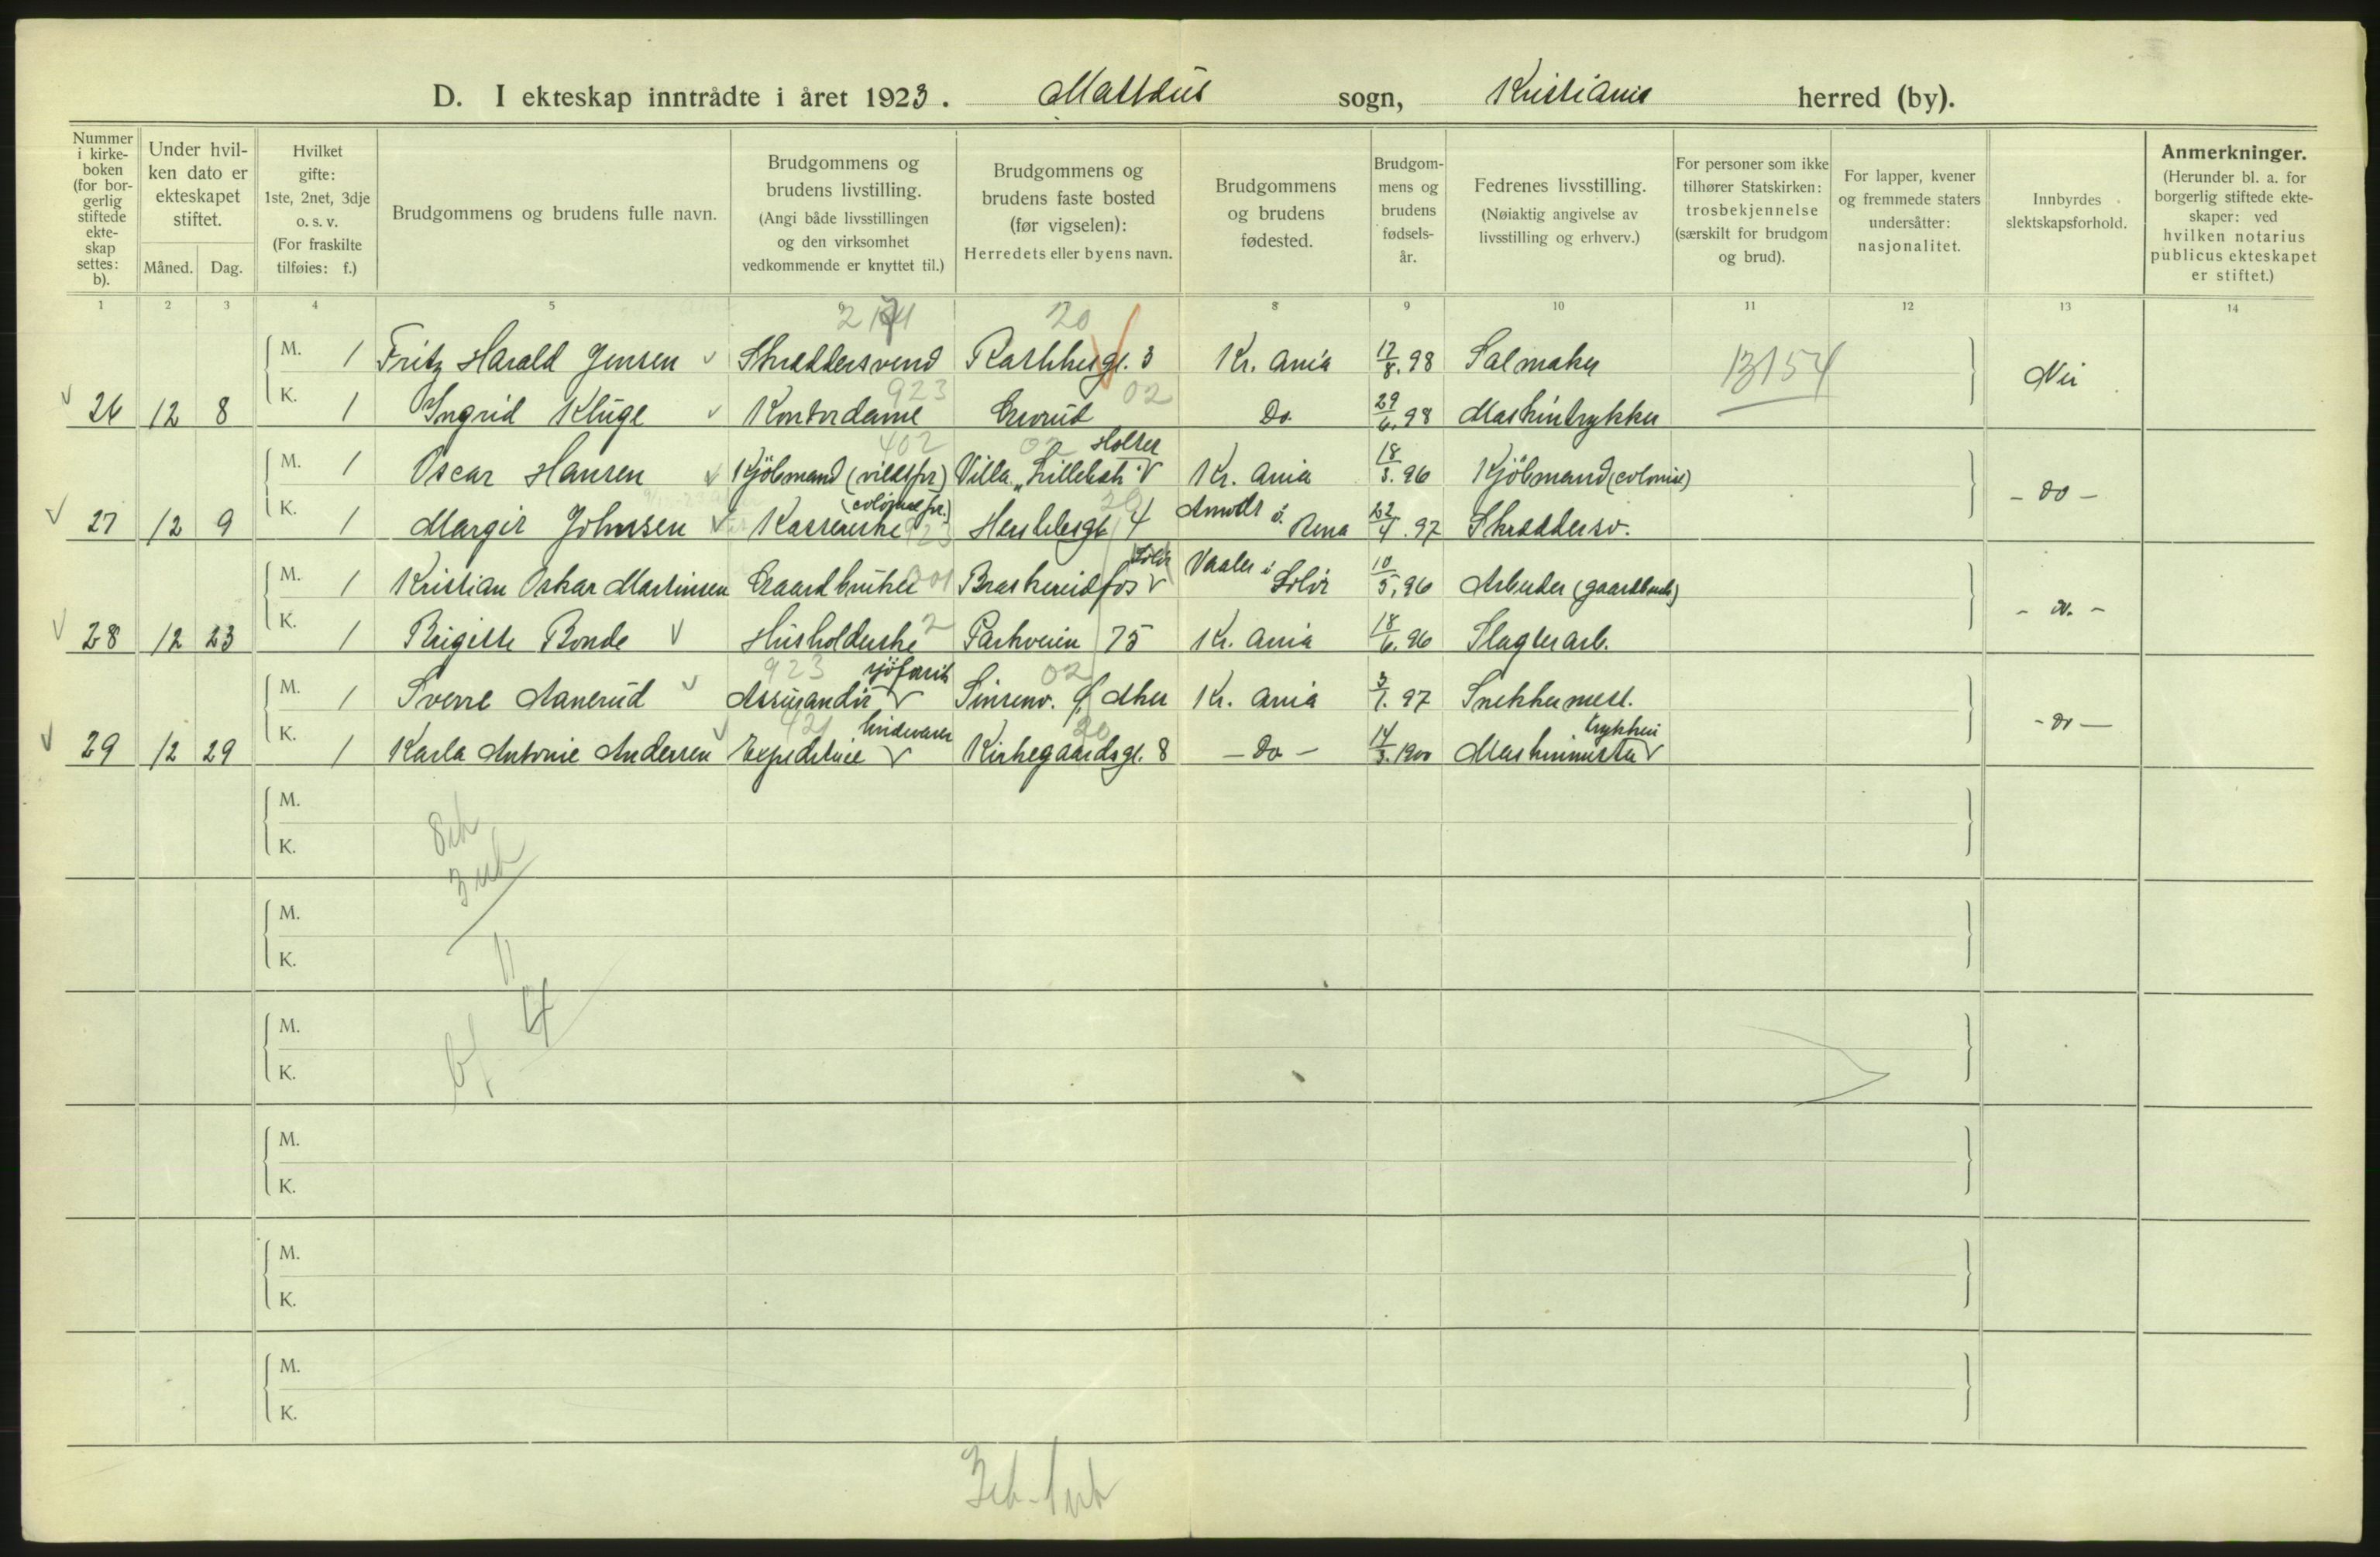 D. I ekteskap inntrådte i året 1923. Mattæus sogn, Kristiania herred (by).
Nummer i kirkeboken (for borgerlig stiftede ekteskap settes: b).
Under hvilken dato er ekteskapet stiftet.
Måned. Dag.
Hvilket gifte: 1ste, 2net, 3dje o. s. v. (For fraskilte tilføies: f.)
Brudgommens og brudens fulle navn.
Brudgommens og brudens livstilling. (Angi både livsstillingen og den virksomhet vedkommende er knyttet til.)
Brudgommens og brudens faste bosted (før vigselen): Herredets eller byens navn.
Brudgommens og brudens fødested.
Brudgommens og brudens fødselsår.
Fedrenes livsstilling. (Nøiaktig angivelse av livsstilling og erhverv.)
For personer som ikke tilhører Statskirken: trosbekjennelse (særskilt for brudgom og brud).
For lapper, kvener og fremmede staters undersåtter: nasjonalitet.
Innbyrdes slektskapsforhold.
Anmerkninger. (Herunder bl. a. for borgerlig stiftede ekteskaper: ved hvilken notarius publicus ekteskapet er stiftet.)
1 2 3 4 5 8 9 10 11 12 13 14
20
M. 1 Fritz Harald Jensen Skreddersvend 3 Kr. ania 17/8. 98 Salmaker 13154 Nei
923 02
26 12 8 K. 1 Ingrid Kluge Kontordame Do 29/6. 98 Maskintrykker
402 02 Holter
M. 1 Oscar Hansen Kjöbmand (vildtfor.) Villa "Lillebak" Kr. ania 18/3. 96 Kjöbmand (colonial) - do -
(colonialfor.) 20
27 12 9 K. 1 Margit Johnsen Kassererske 923 Herslebsgt 4 Aamodt i Rena 22/4. 97 Skreddersv.
Solör
M. 1 Kristian Oskar Martinsen Gaardbruker 01 Braskereidfos Vaaler i Solör 10/5. 96 Arbeider (gaardbruk) - do. -
28 12 23 K. 1 Birgitte Bonde Husholderske 2 Parkveien 75 Kr. ania 18/6. 96 Slagterarb.
923 sjöforsik 02
M. 1 Sverre Aanerud Assurandör Sinsenv. Aker Kr. ania 3/1. 97 Snekkermest. - do -
421 20 trykkeri
29 12 29 K. 1 Karla Antonie Andersen Expeditrice Kirkegaardsgt. 8 - Do - 14/3. 1900 Maskinmester
M.
K.
M.
K.
4
M.
K.
M.
K.
M.
K.
M.
K.